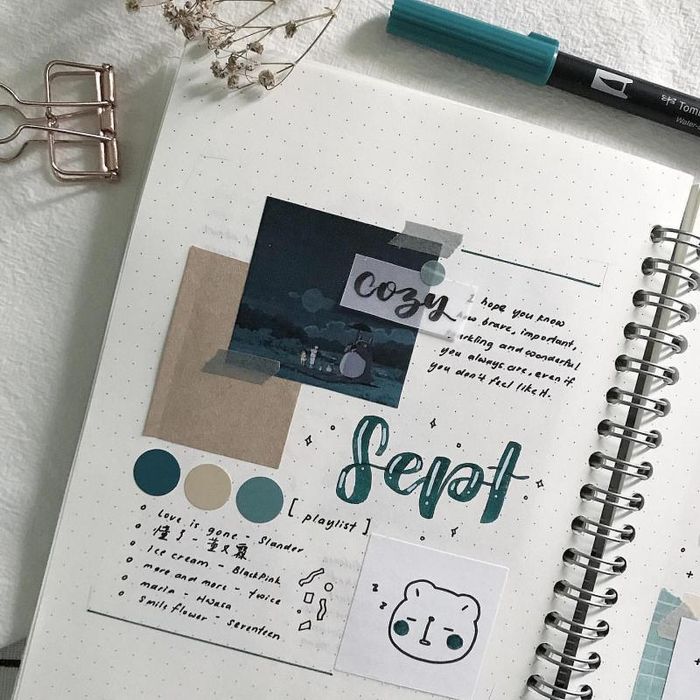 Tom
Water-
cozy
I hope you know
brave, important,
and wonderful
you always are, even if
you don't feel like it.
Sept
[ playlist ]
Love is gone - Slander
懂了 - 董又霖
ice cream - BlackPink
more and more - twice
maria - Hwasa
smile flower - seventeen
z
z